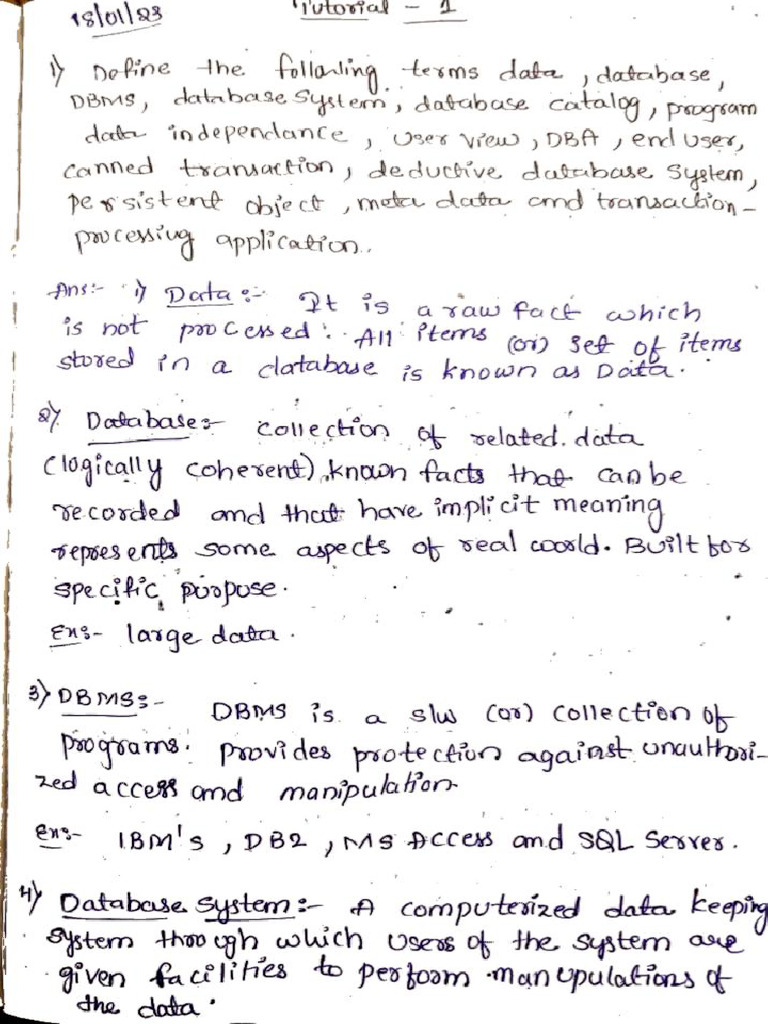 18/01/23 Tutorial - 1
1) Define the following terms data, database,
DBMS, database system, database catalog, program
data independance, user view, DBA, end user,
canned transaction, deductive database system,
persistent object, meta data and transaction-
processing application.
Ans:- 1) Data:- It is a raw fact which
is not processed. All items (or) set of items
stored in a database is known as Data.
2) Database:- Collection of related data
(logically coherent), known facts that can be
recorded and that have implicit meaning
represents some aspects of real world. Built for
specific purpose.
Ex:- large data.
3) DBMS:- DBMS is a s/w (or) collection of
programs. provides protection against unauthori-
zed access and manipulation.
Ex:- IBM's, DB2, MS Access and SQL Server.
4) Database system:- A computerized data keeping
system through which users of the system are
given facilities to perform manupulations of
the data.